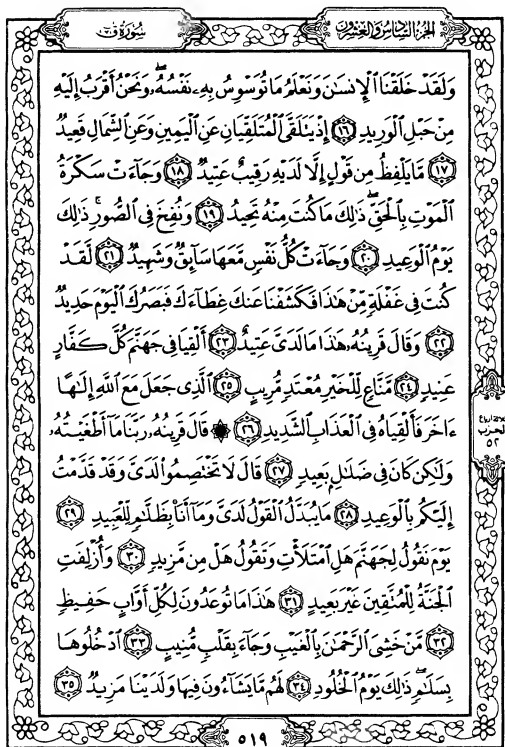 سُورَةُ قٓ
الجُزْءُ السَّادِسُ وَالعِشْرُونَ
وَلَقَدْ خَلَقْنَا ٱلْإِنسَٰنَ وَنَعْلَمُ مَا تُوَسْوِسُ بِهِۦ نَفْسُهُۥۖ وَنَحْنُ أَقْرَبُ إِلَيْهِ
مِنْ حَبْلِ ٱلْوَرِيدِ ١٦ إِذْ يَتَلَقَّى ٱلْمُتَلَقِّيَانِ عَنِ ٱلْيَمِينِ وَعَنِ ٱلشِّمَالِ قَعِيدٌ
١٧ مَّا يَلْفِظُ مِن قَوْلٍ إِلَّا لَدَيْهِ رَقِيبٌ عَتِيدٌ ١٨ وَجَآءَتْ سَكْرَةُ
ٱلْمَوْتِ بِٱلْحَقِّۖ ذَٰلِكَ مَا كُنتَ مِنْهُ تَحِيدُ ١٩ وَنُفِخَ فِى ٱلصُّورِۚ ذَٰلِكَ
يَوْمُ ٱلْوَعِيدِ ٢٠ وَجَآءَتْ كُلُّ نَفْسٍ مَّعَهَا سَآئِقٌ وَشَهِيدٌ ٢١ لَّقَدْ
كُنتَ فِى غَفْلَةٍ مِّنْ هَٰذَا فَكَشَفْنَا عَنكَ غِطَآءَكَ فَبَصَرُكَ ٱلْيَوْمَ حَدِيدٌ
٢٢ وَقَالَ قَرِينُهُۥ هَٰذَا مَا لَدَىَّ عَتِيدٌ ٢٣ أَلْقِيَا فِى جَهَنَّمَ كُلَّ كَفَّارٍ
عَنِيدٍ ٢٤ مَّنَّاعٍ لِّلْخَيْرِ مُعْتَدٍ مُّرِيبٍ ٢٥ ٱلَّذِى جَعَلَ مَعَ ٱللَّهِ إِلَٰهًا
ءَاخَرَ فَأَلْقِيَاهُ فِى ٱلْعَذَابِ ٱلشَّدِيدِ ٢٦ ۞ قَالَ قَرِينُهُۥ رَبَّنَا مَآ أَطْغَيْتُهُۥ
وَلَٰكِن كَانَ فِى ضَلَٰلٍۭ بَعِيدٍ ٢٧ قَالَ لَا تَخْتَصِمُوا۟ لَدَىَّ وَقَدْ قَدَّمْتُ
إِلَيْكُم بِٱلْوَعِيدِ ٢٨ مَا يُبَدَّلُ ٱلْقَوْلُ لَدَىَّ وَمَآ أَنَا۠ بِظَلَّٰمٍ لِّلْعَبِيدِ ٢٩
يَوْمَ نَقُولُ لِجَهَنَّمَ هَلِ ٱمْتَلَأْتِ وَتَقُولُ هَلْ مِن مَّزِيدٍ ٣٠ وَأُزْلِفَتِ
ٱلْجَنَّةُ لِلْمُتَّقِينَ غَيْرَ بَعِيدٍ ٣١ هَٰذَا مَا تُوعَدُونَ لِكُلِّ أَوَّابٍ حَفِيظٍ
٣٢ مَّنْ خَشِىَ ٱلرَّحْمَٰنَ بِٱلْغَيْبِ وَجَآءَ بِقَلْبٍ مُّنِيبٍ ٣٣ ٱدْخُلُوهَا
بِسَلَٰمٍۖ ذَٰلِكَ يَوْمُ ٱلْخُلُودِ ٣٤ لَهُم مَّا يَشَآءُونَ فِيهَا وَلَدَيْنَا مَزِيدٌ ٣٥
ثلاثة أرباع
الحزب
٥٢
٥١٩